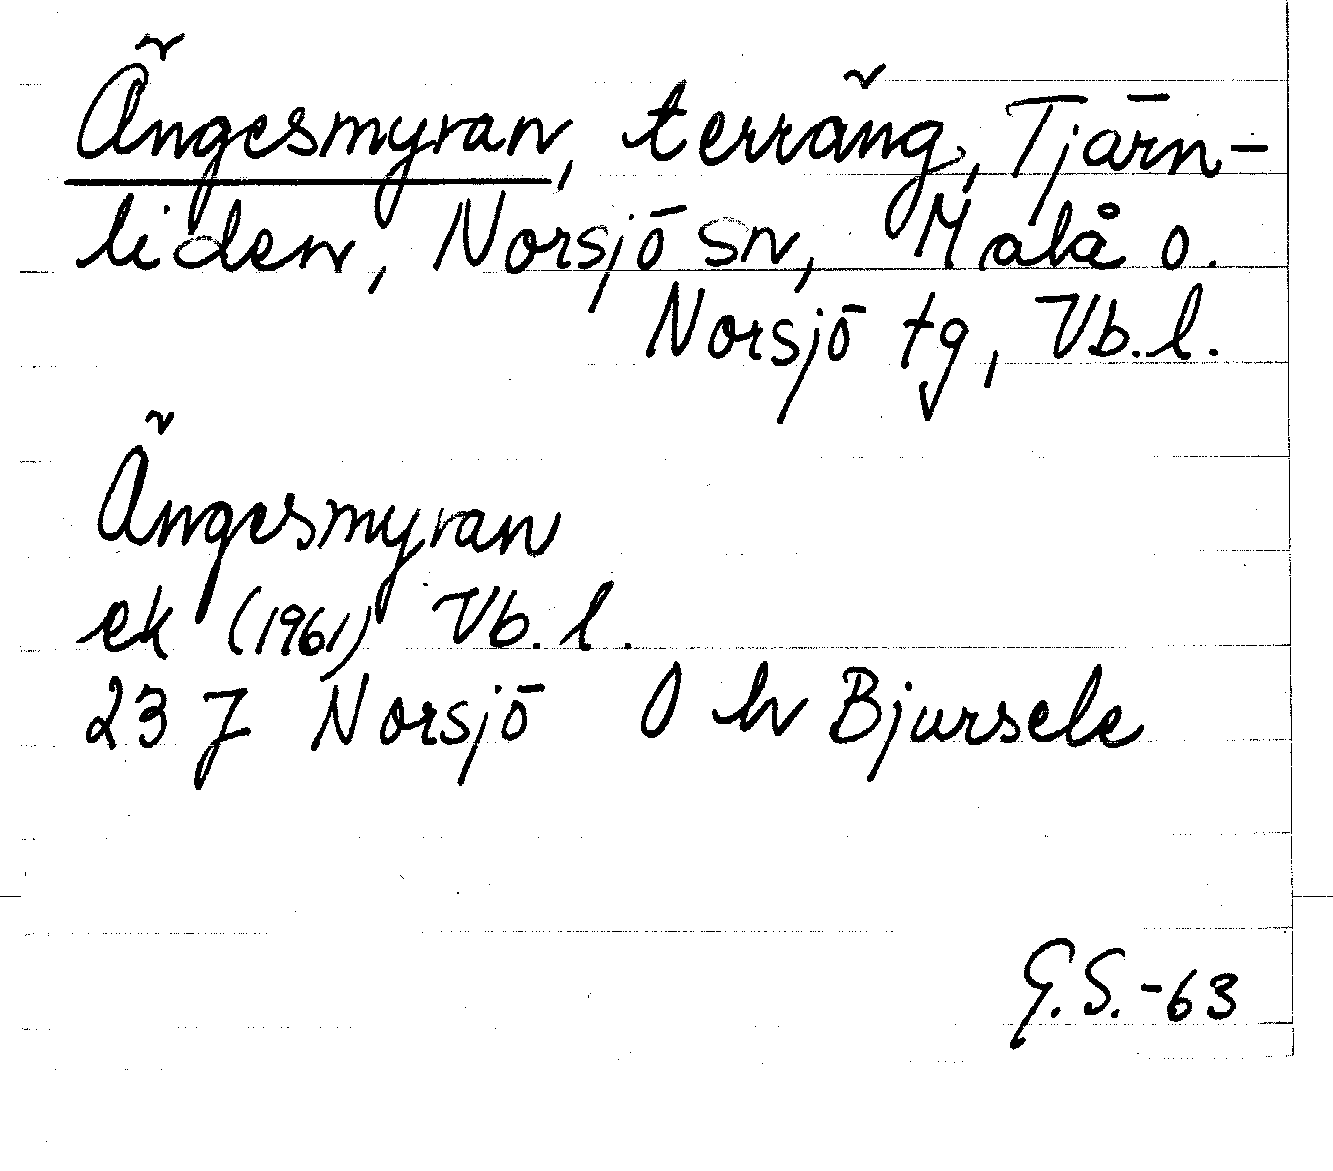 Ängesmyran, terräng, Tjärn-
liden, Norsjö sn, Malå o.
Norsjö tg, Vb.l.
Ängesmyran
ek (1961) Vb. l.
23 J Norsjö O h v Bjursele
G.S.-63